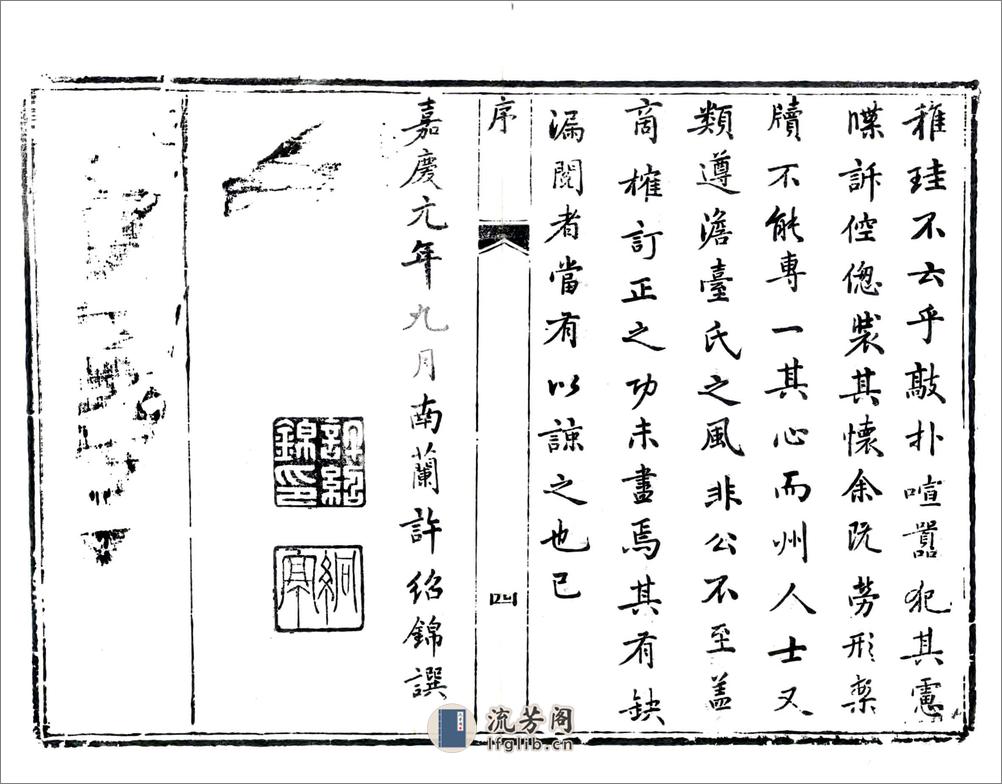 稚珪不云乎敲扑喧囂犯其慮
牒訴倥偬裝其懷余既勞形案
牘不能專一其心而州人士又
類遵澹臺氏之風非公不至蓋
商榷訂正之功未盡焉其有缺
漏閱者當有以諒之也已
序
四
嘉慶元年九月南蘭許紹錦撰
許紹錦印
流芳阁
lfglib.cn